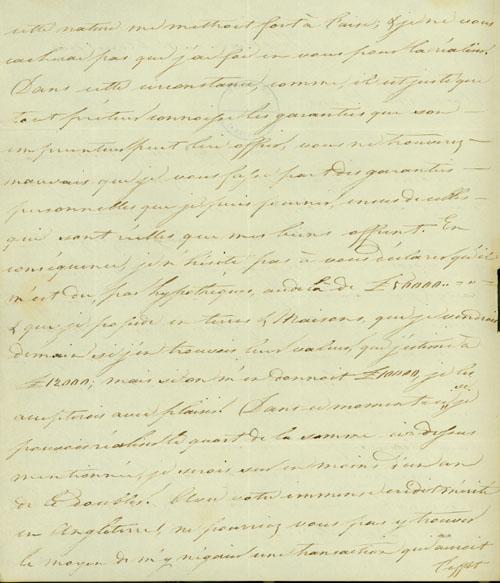 cette nature me mettroit fort à l'aise; & je ne vous
cacherai pas que j'ai foi en vous pour la réaliser.
Dans cette circonstance, comme il est juste que
tout prêteur connoisse les garanties que son
emprunteur peut lui offrir, vous ne trouverez
mauvais que je vous fasse part des garanties
personnelles que je puis fournir, en sus de celles
qui sont réelles que mes biens offrent. En
conséquence, je n'hésite pas à vous déclarer qu'il
m'est dû, par hypothèques, au delà de £50000..
& que je possède en terres & Maisons, que je vendrois
demain si j'en trouvois leur valeur, que j'estime à
£12000; mais si on m'en donnoit £10000, je les
accepterois avec plaisir. Dans ce moment ci, si je
pouvois réaliser le quart de la somme ci-dessus
mentionnée, je serois sûr en moins d'un an
de la doubler. Avec votre immense crédit mérité
en Angleterre, ne pourriez vous pas y trouver
le moyen de m'y négocier une transaction qui auroit
l'effet